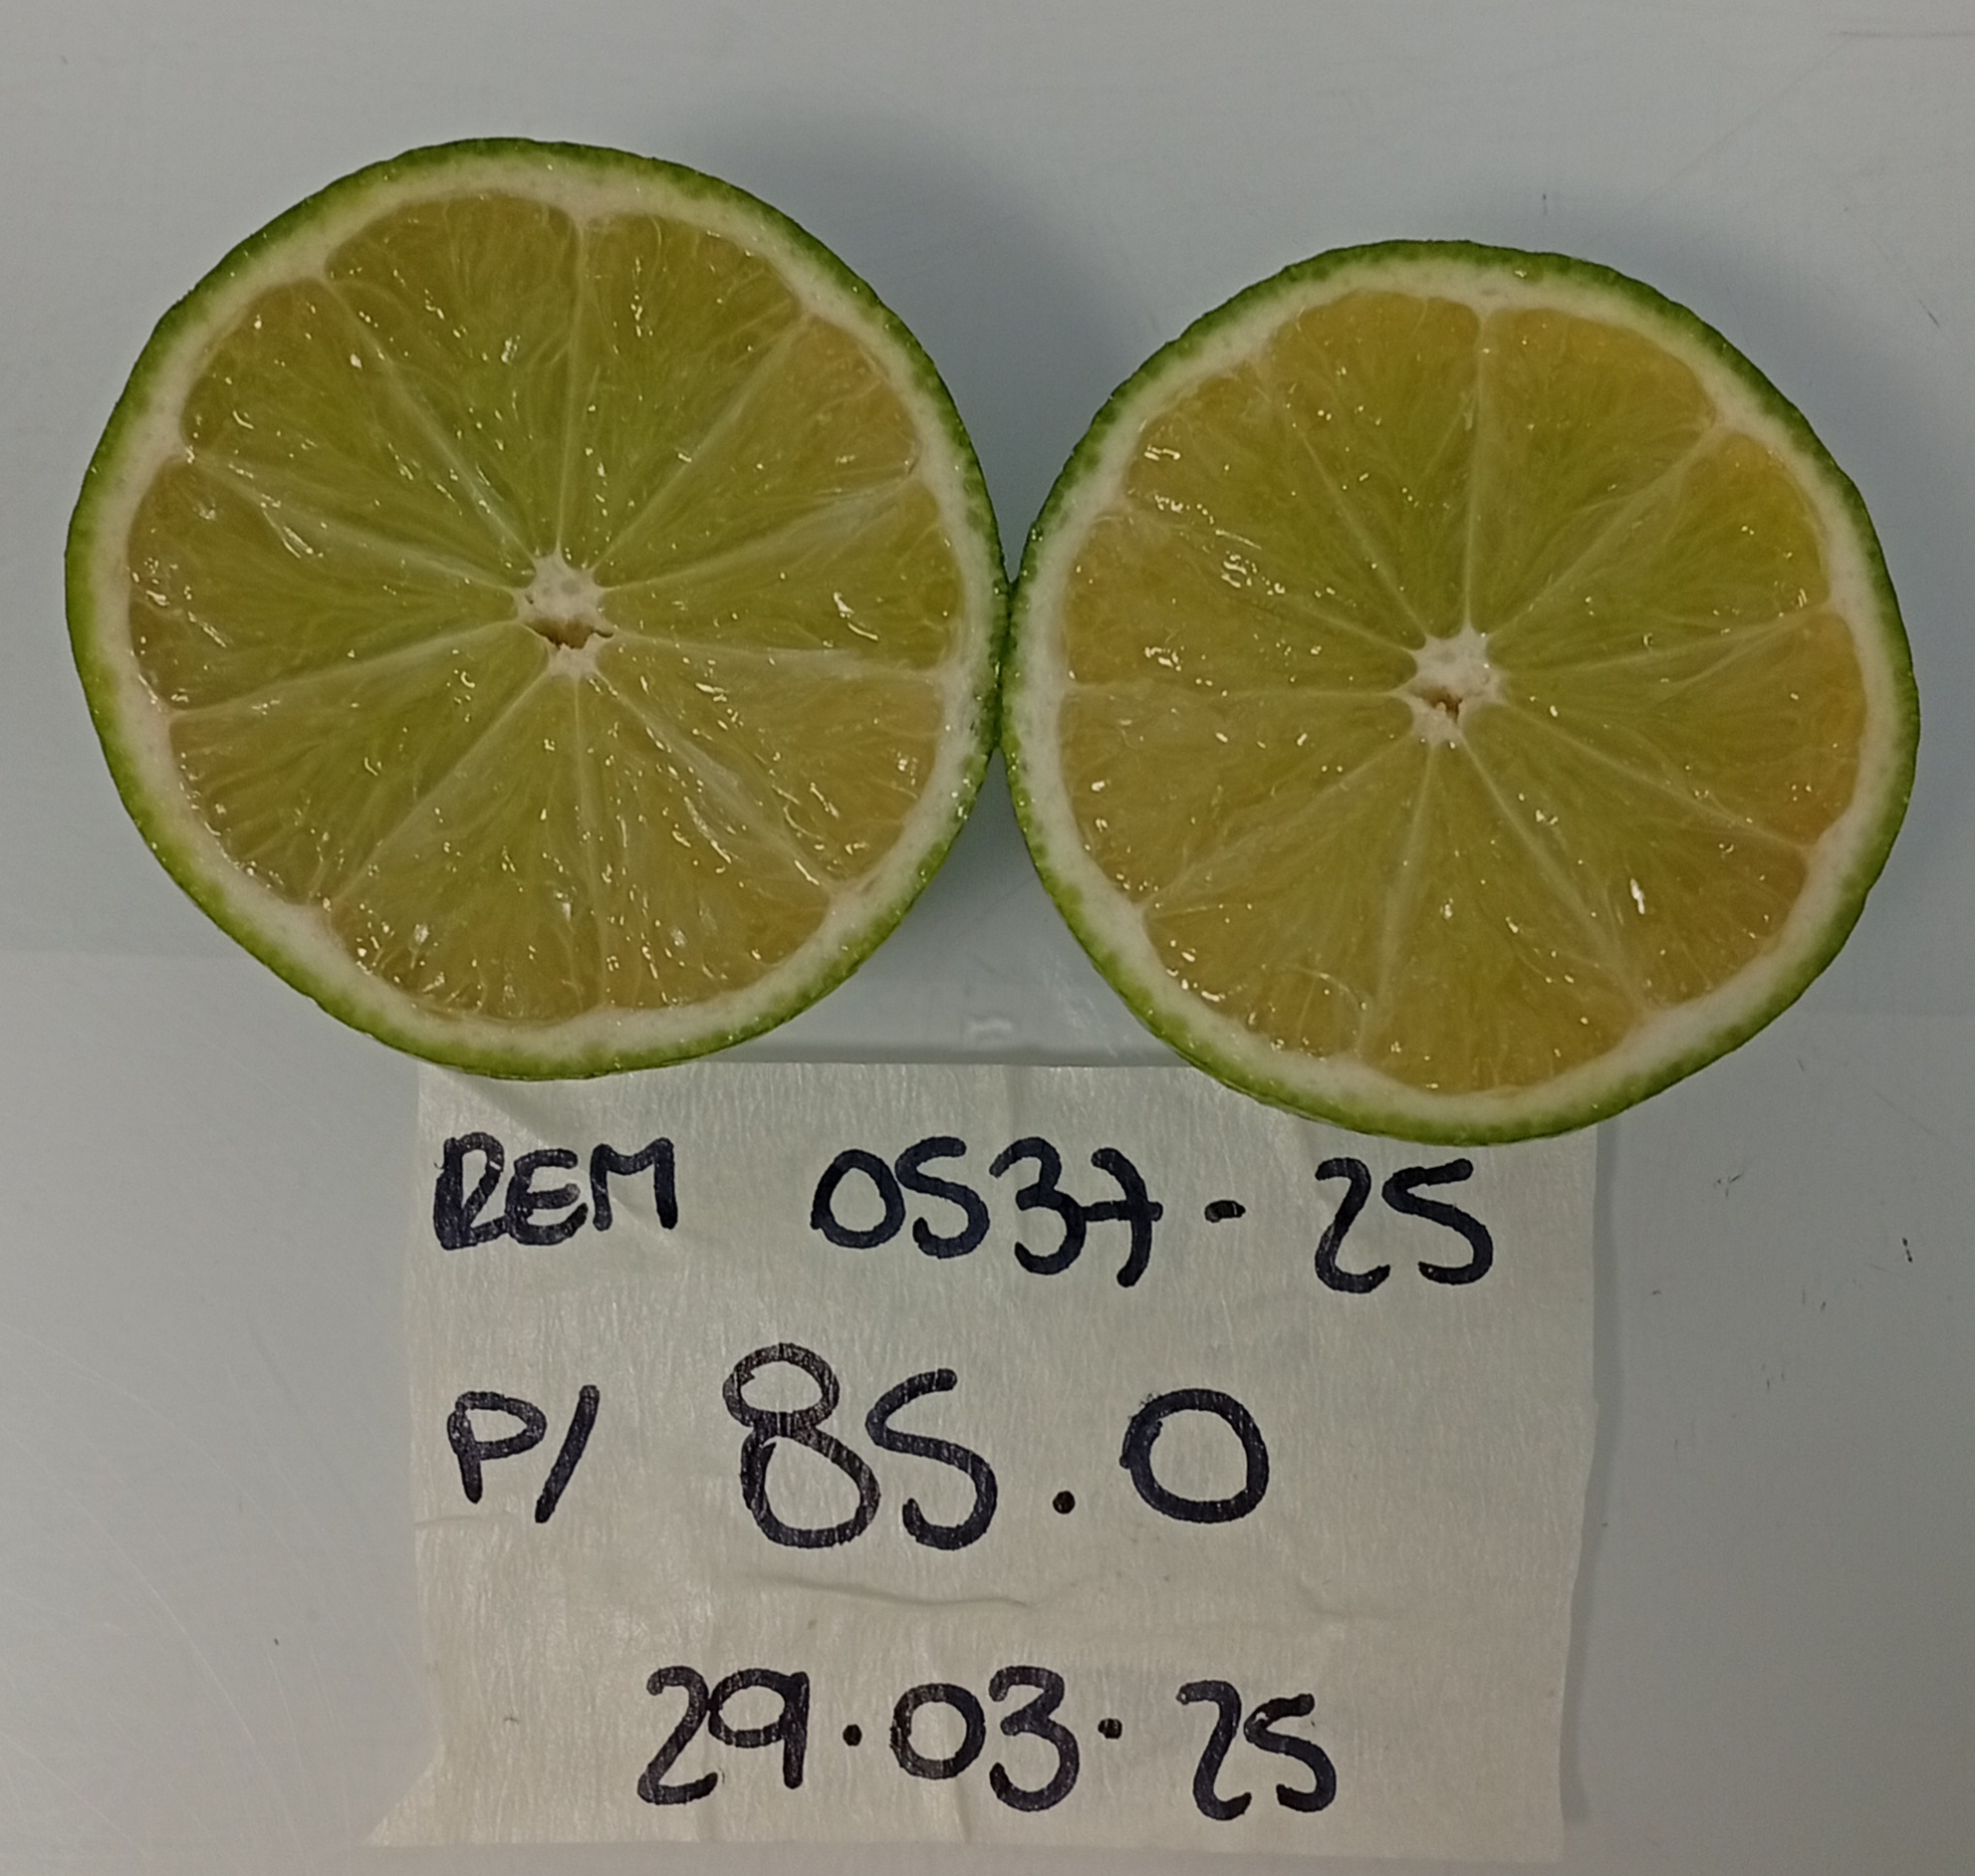 REM 0537-25
P/ 85.0
29.03.25